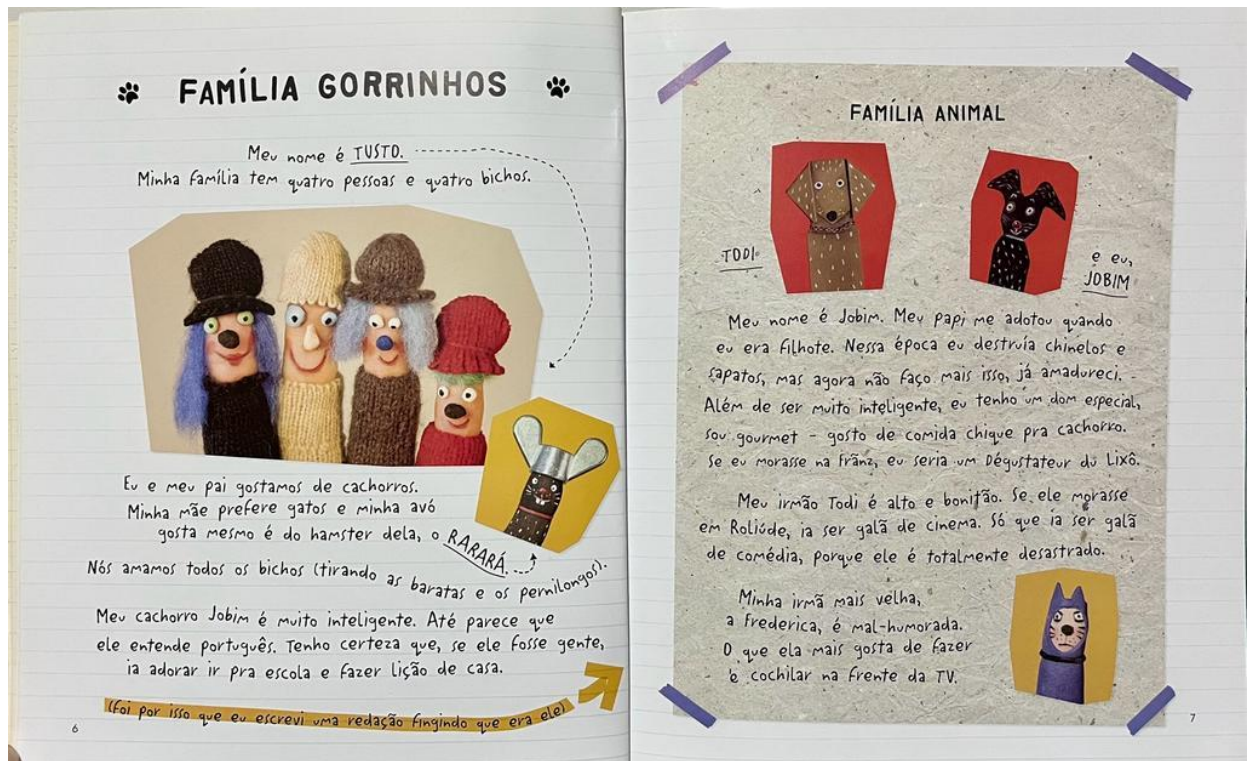 FAMÍLIA GORRINHOS
Meu nome é TUSTO.
Minha família tem quatro pessoas e quatro bichos.
Eu e meu pai gostamos de cachorros.
Minha mãe prefere gatos e minha avó
gosta mesmo é do hamster dela, o RARARÁ.
Nós amamos todos os bichos (tirando as baratas e os pernilongos).
Meu cachorro Jobim é muito inteligente. Até parece que
ele entende português. Tenho certeza que, se ele fosse gente,
ia adorar ir pra escola e fazer lição de casa.
(Foi por isso que eu escrevi uma redação fingindo que era ele)
6
FAMÍLIA ANIMAL
TODI
e eu,
JOBIM
Meu nome é Jobim. Meu papi me adotou quando
eu era filhote. Nessa época eu destruía chinelos e
sapatos, mas agora não faço mais isso, já amadureci.
Além de ser muito inteligente, eu tenho um dom especial,
sou gourmet - gosto de comida chique pra cachorro.
Se eu morasse na Frãnz, eu seria um Dégustateur du Lixô.
Meu irmão Todi é alto e bonitão. Se ele morasse
em Roliúde, ia ser galã de cinema. Só que ia ser galã
de comédia, porque ele é totalmente desastrado.
Minha irmã mais velha,
a Frederica, é mal-humorada.
O que ela mais gosta de fazer
é cochilar na frente da TV.
7